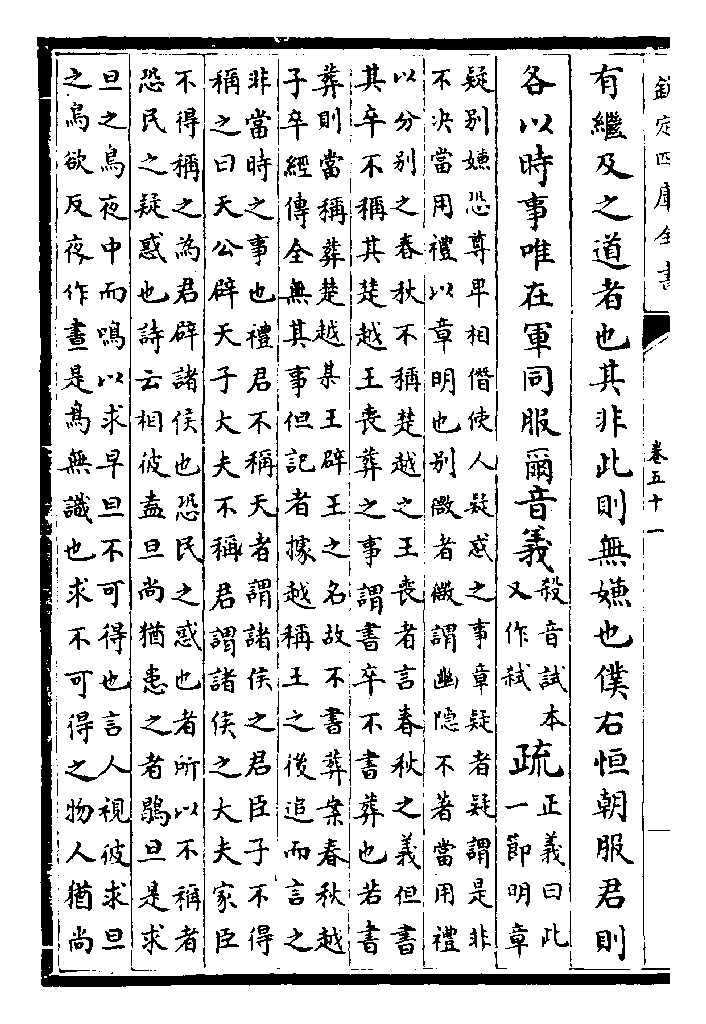 欽定四庫全書
卷五十一
有繼及之道者也其非此則無嫌也僕右恒朝服君則
各以時事唯在軍同服爾音義
殺音試本
又作弑
疏
正義曰此
一節明章
疑别嫌恐尊卑相僭使人疑惑之事章疑者疑謂是非
不決當用禮以章明也别微者微謂幽隱不著當用禮
以分别之春秋不稱楚越之王喪者言春秋之義但書
其卒不稱其楚越王喪葬之事謂書卒不書葬也若書
葬則當稱葬楚越某王辟王之名故不書葬案春秋越
子卒經傳全無其事但記者據越稱王之後追而言之
非當時之事也禮君不稱天者謂諸侯之君臣子不得
稱之曰天公辟天子大夫不稱君謂諸侯之大夫家臣
不得稱之為君辟諸侯也恐民之惑也者所以不稱者
恐民之疑惑也詩云相彼盍旦尚猶患之者鶡旦是求
旦之鳥夜中而鳴以求早旦不可得也言人視彼求旦
之鳥欲反夜作晝是鳥無識也求不可得之物人猶尚